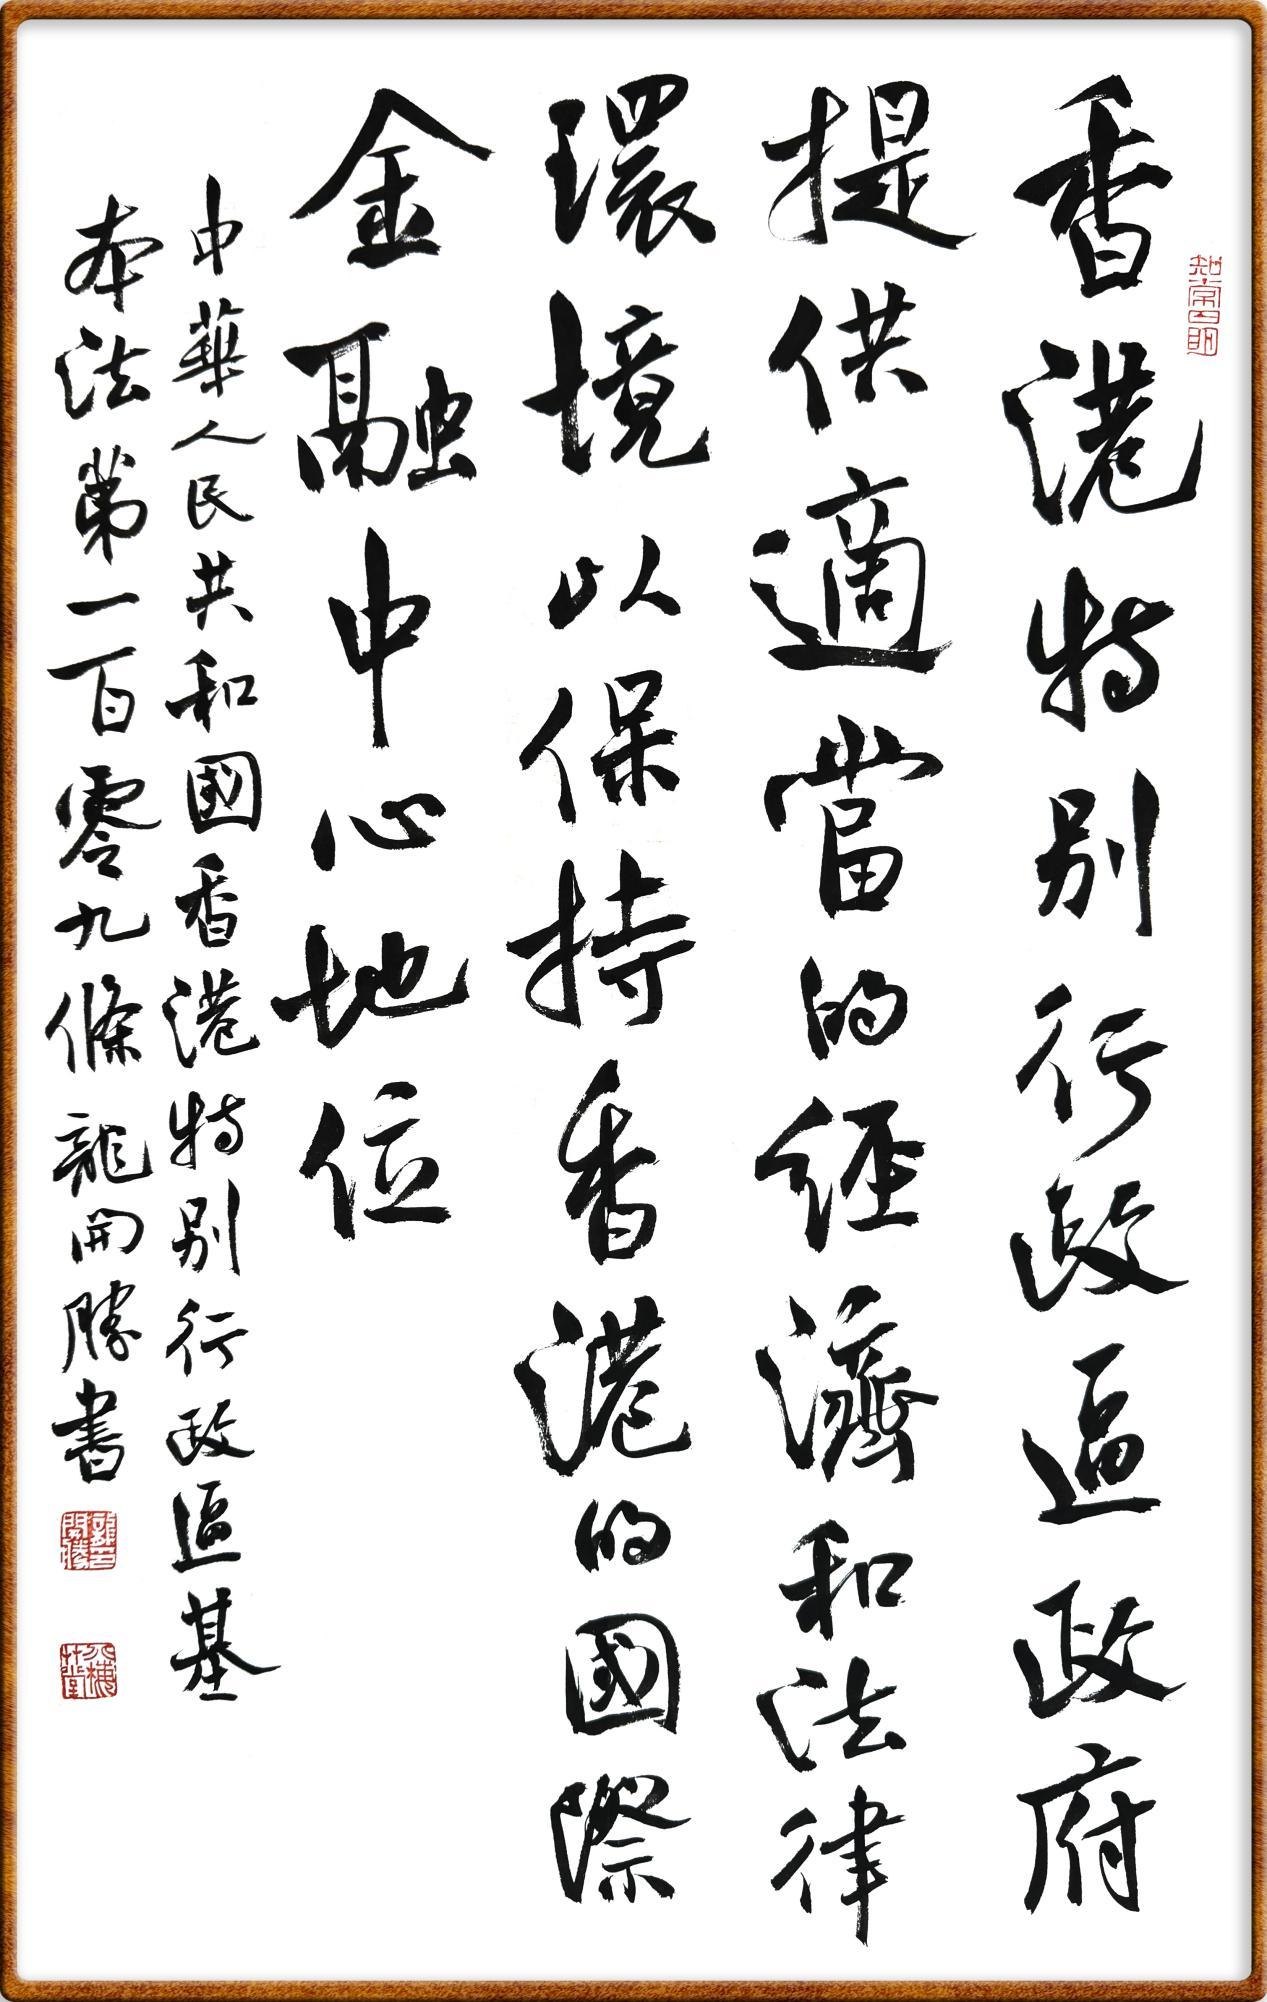 香港特别行政區政府
提供適當的經濟和法律
環境以保持香港的國際
金融中心地位
中華人民共和國香港特别行政區基
本法第一百零九條龍開勝書
知常曰明
龍開勝印